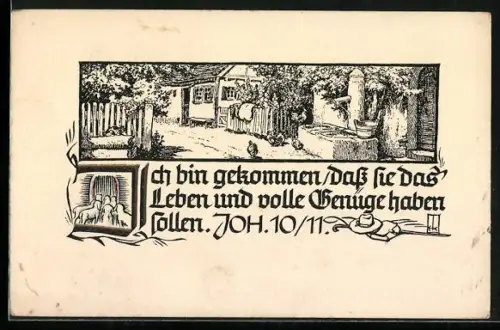 Ich bin gekommen/daß sie das
Leben und volle Genüge haben
sollen. JOH. 10/11.